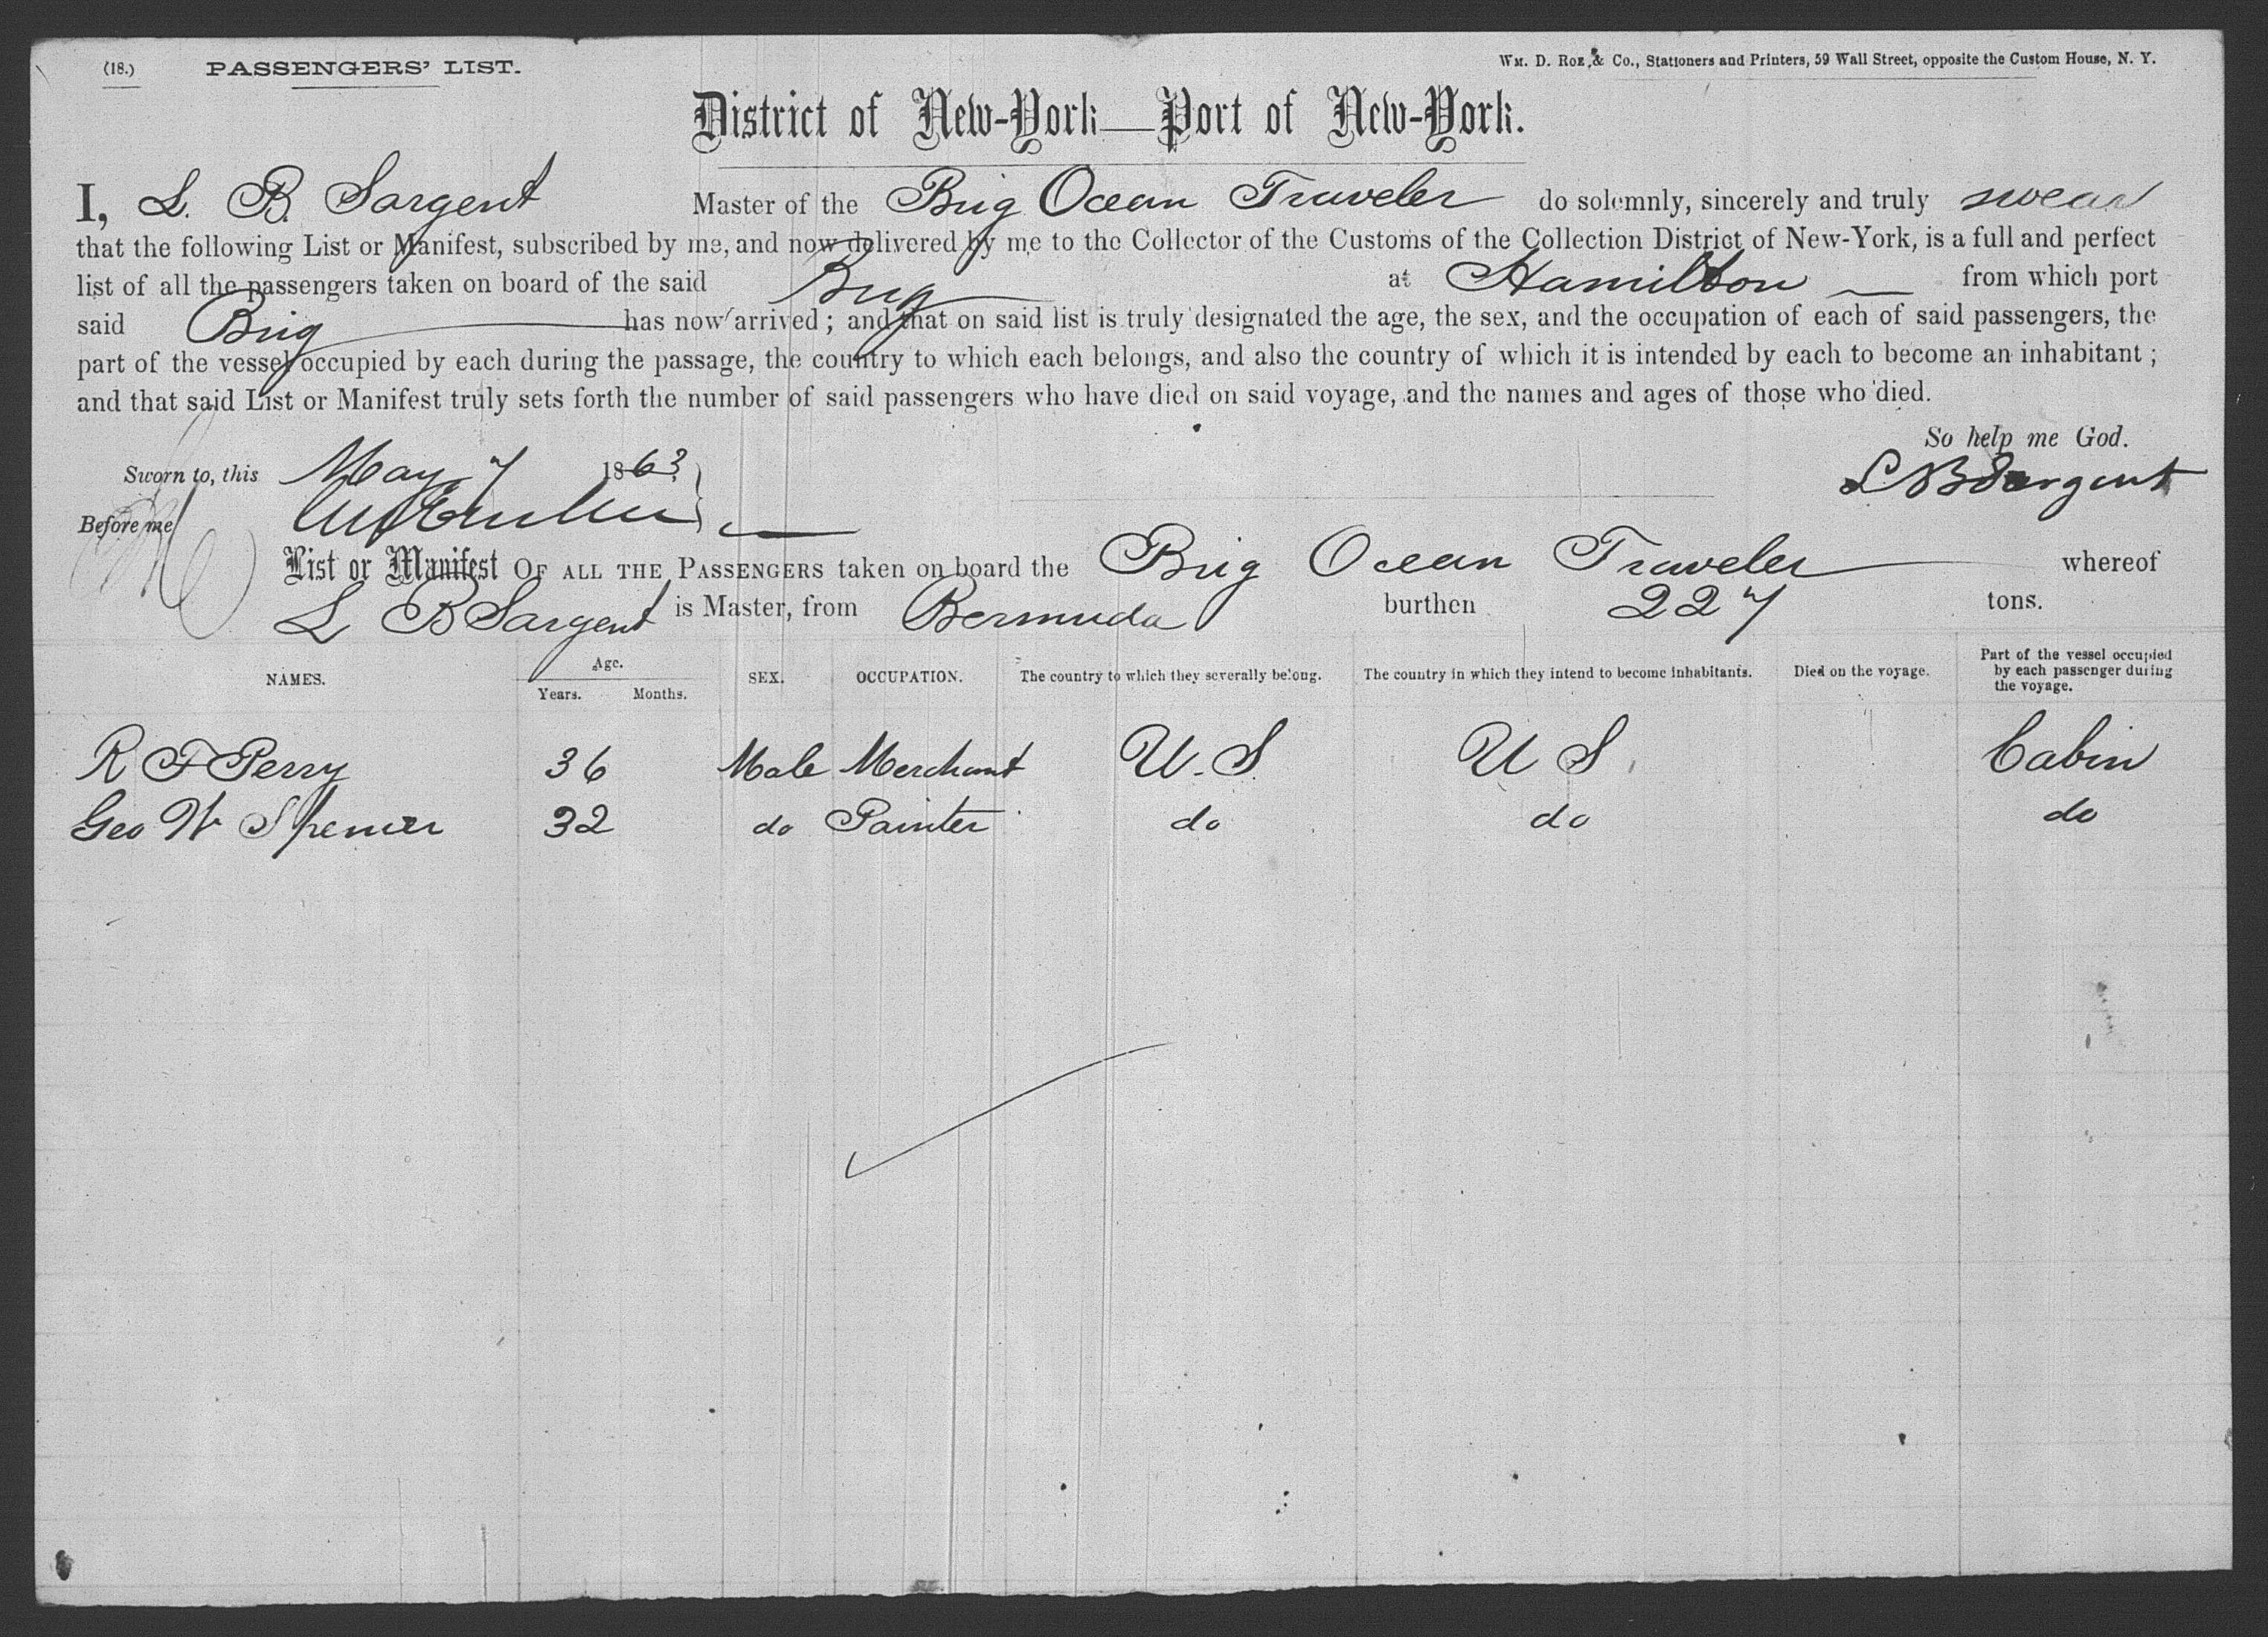 (18.) PASSENGERS' LIST. Wm. D. Roe, & Co., Stationers and Printers, 59 Wall Street, opposite the Custom House, N. Y.
District of New-York—Port of New-York.
I, L. B. Sargent Master of the Brig Ocean Traveler do solemnly, sincerely and truly swear
that the following List or Manifest, subscribed by me, and now delivered by me to the Collector of the Customs of the Collection District of New-York, is a full and perfect
list of all the passengers taken on board of the said Brig at Hamilton from which port
said Brig has now arrived; and that on said list is truly designated the age, the sex, and the occupation of each of said passengers, the
part of the vessel occupied by each during the passage, the country to which each belongs, and also the country of which it is intended by each to become an inhabitant;
and that said List or Manifest truly sets forth the number of said passengers who have died on said voyage, and the names and ages of those who died.
So help me God.
Sworn to, this May 7 1863 L B Sargent
Before me
List or Manifest OF ALL THE PASSENGERS taken on board the Brig Ocean Traveler whereof
L B Sargent is Master, from Bermuda burthen 227 tons.
NAMES. Age. Years. Months. SEX. OCCUPATION. The country to which they severally belong. The country in which they intend to become inhabitants. Died on the voyage. Part of the vessel occupied by each passenger during the voyage.
R F Perry 36 Male Merchant U.S. U S. Cabin
Geo W Spencer 32 do Painter do do do